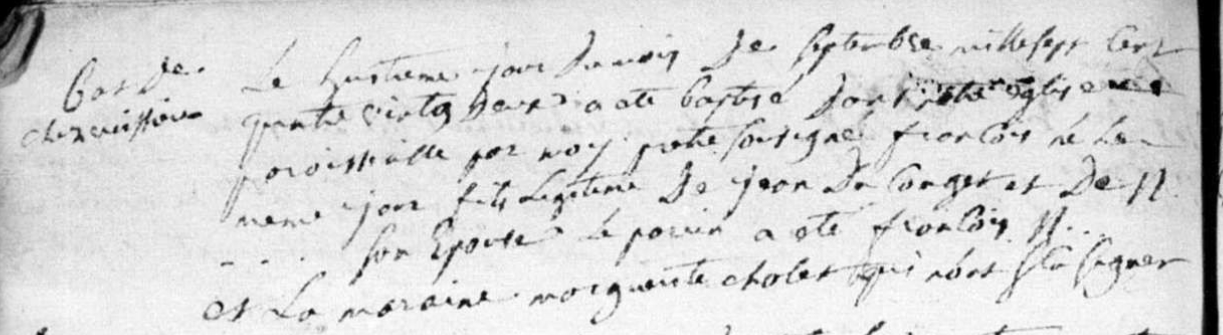 bat de
Le huitieme jour du mois de septembre mille sept cent
quatre vintg deux a ete baptisé dans notre eglise
paroissialle par moy pretre sousigné francois né le
meme jour fils legitime de jean Du Conget et de N
. . . . son Epouse le parrin a ete francois N . .
et La maraine marguerite cholet qui n'ont sçu signer